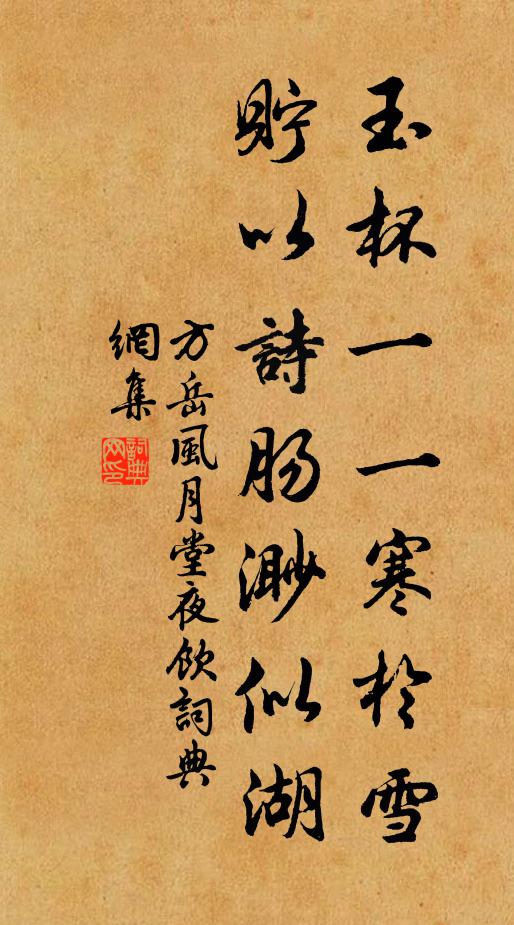 玉杯一一寒於雪
貯以詩肠渺似湖
方岳風月堂夜飲詞典
網集
詞典
网印